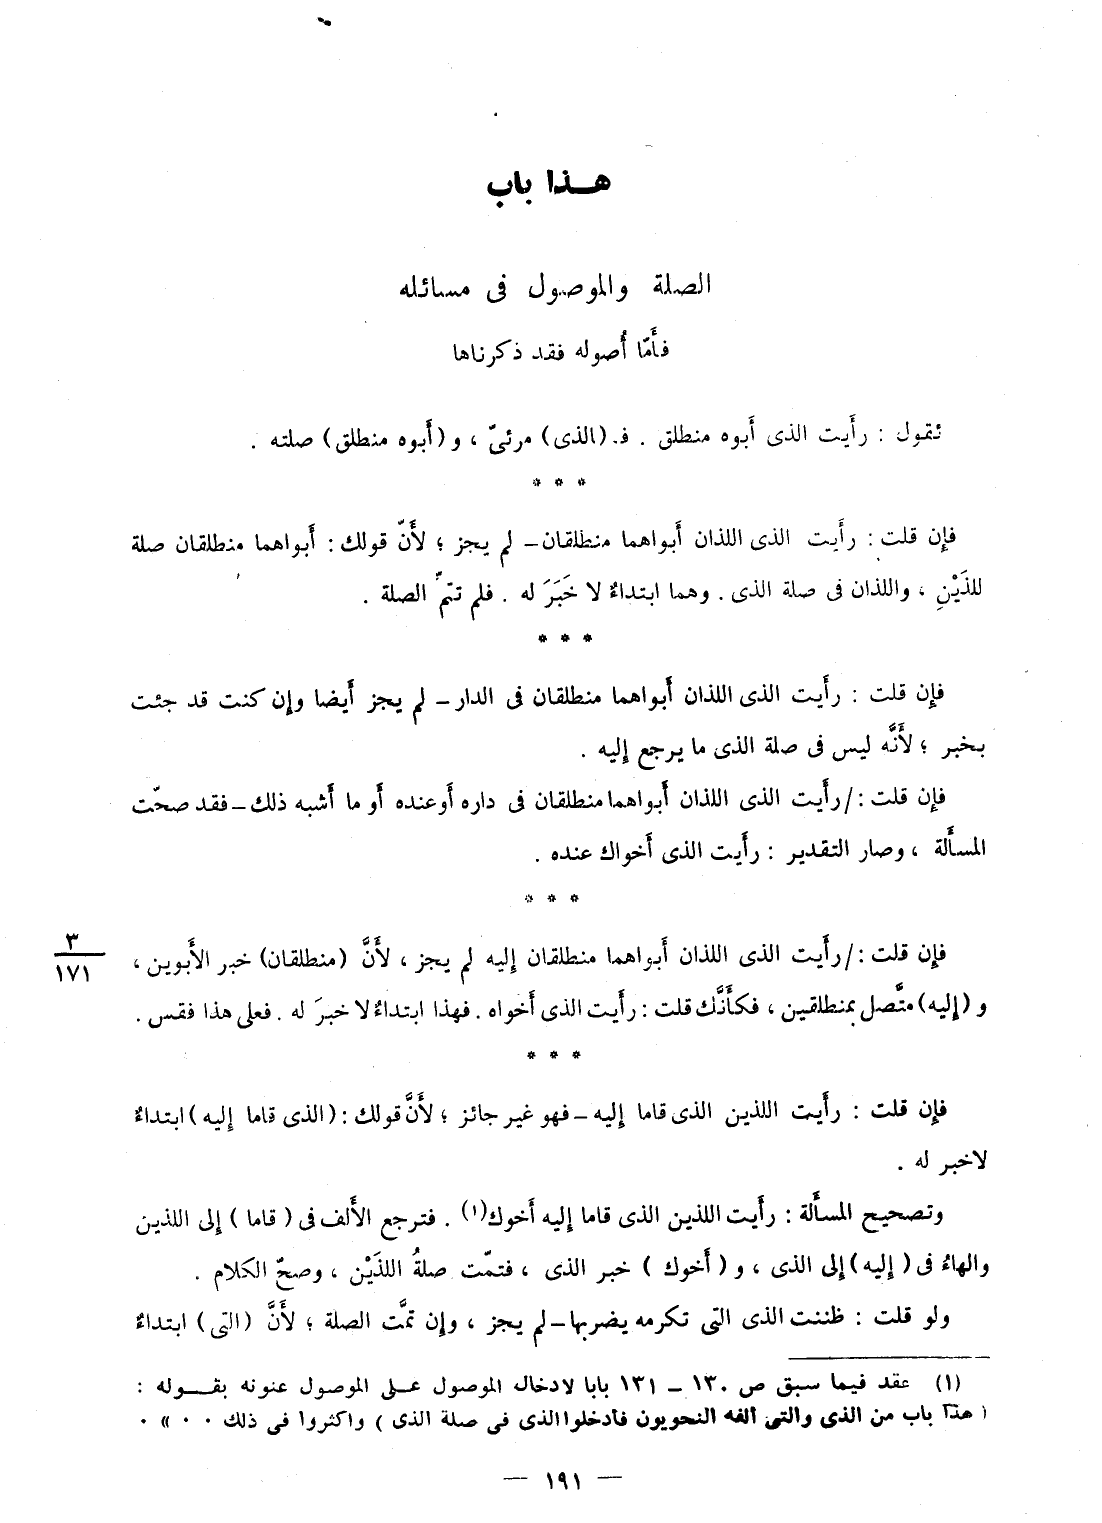 هـــذا باب
الصلة والموصول فى مسائله
فأَمّا أُصوله فقد ذكرناها
نقول : رأَيت الذى أَبوه منطلق . فـ (الذى) مرئىّ ، و (أَبوه منطلق) صلته .
* * *
فإن قلت : رأَيت الذى اللذان أَبواهما منطلقان – لم يجز ؛ لأَنّ قولك : أَبواهما منطلقان صلة
للذَيْنِ ، واللذان فى صلة الذى . وهما ابتداءٌ لا خَبَرَ له . فلم تتمّ الصلة .
* * *
فإن قلت : رأَيت الذى اللذان أَبواهما منطلقان فى الدار – لم يجز أَيضا وإن كنت قد جئت
بخبر ؛ لأَنَّه ليس فى صلة الذى ما يرجع إليه .
فإن قلت : / رأَيت الذى اللذان أَبواهما منطلقان فى داره أَو عنده أَو ما أَشبه ذلك – فقد صحّت
المسأَلة ، وصار التقدير : رأَيت الذى أَخواك عنده .
* * *
فإن قلت : / رأَيت الذى اللذان أَبواهما منطلقان إليه لم يجز ، لأَنَّ (منطلقان) خبر الأَبوين ،
٣
١٧١
و (إليه) متَّصل بمنطلقين ، فكأَنَّك قلت : رأَيت الذى أَخواه . فهذا ابتداءٌ لا خبرَ له . فعلى هذا فقس .
* * *
فإن قلت : رأَيت اللذين الذى قاما إليه – فهو غير جائز ؛ لأَنَّ قولك : (الذى قاما إليه) ابتداءٌ
لاخبر له .
وتصحيح المسأَلة : رأَيت اللذين الذى قاما إليه أَخوك(١) . فترجع الأَلف فى (قاما) إلى اللذين
والهاءُ فى (إليه) إلى الذى ، و (أَخوك) خبر الذى ، فتمّت صلةُ اللذَيْن ، وصحّ الكلام .
ولو قلت : ظننت الذى التى تكرمه يضربها – لم يجز ، وإن تمَّت الصلة ؛ لأَنَّ (التى) ابتداءٌ
(١) عقد فيما سبق ص ١٣٠ – ١٣١ بابا لادخال الموصول على الموصول عنونه بقوله :
( هذا باب من الذى والتى الفه النحويون فأدخلوا الذى فى صلة الذى ) واكثروا فى ذلك ٠ ٠ » ٠
— ١٩١ —